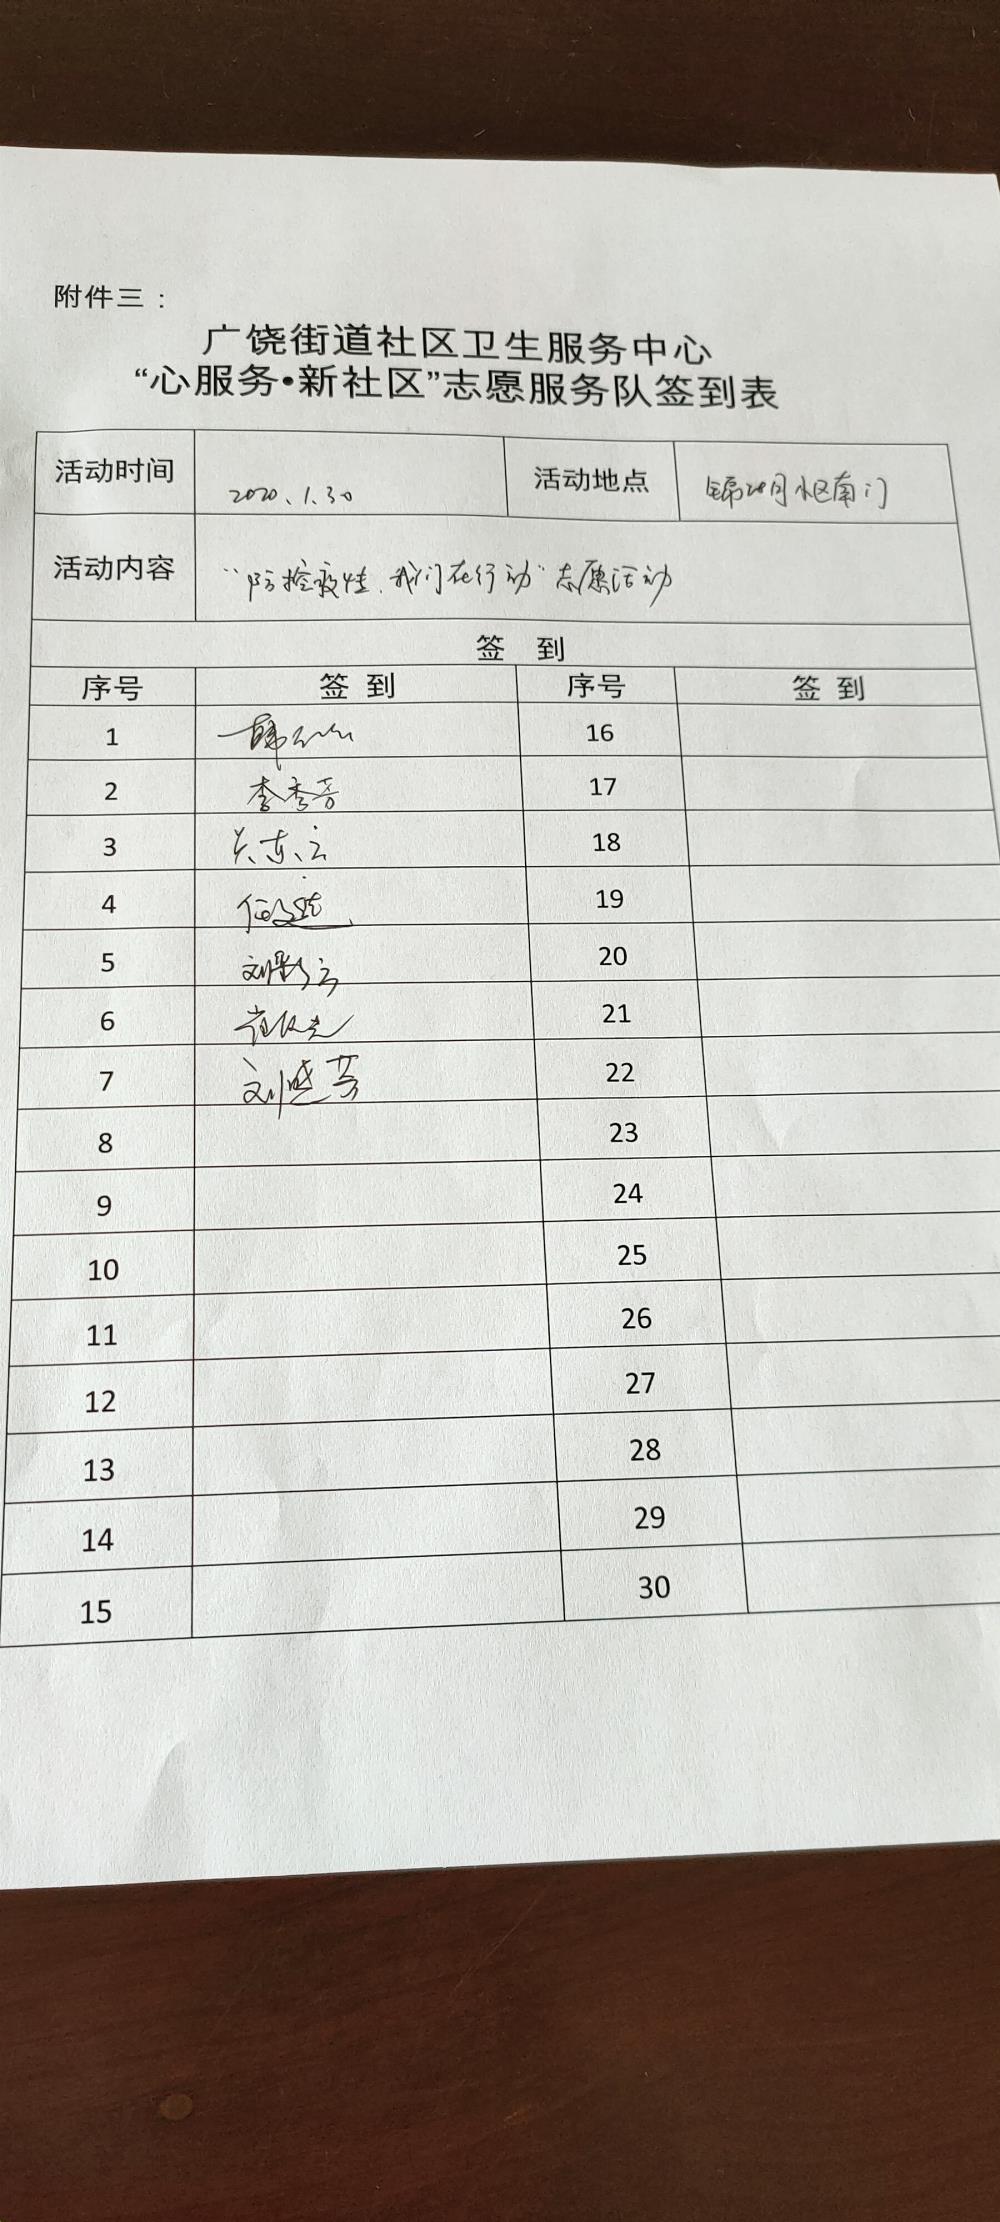 附件三：
广饶街道社区卫生服务中心
“心服务•新社区”志愿服务队签到表
活动时间 2020.1.30 活动地点 区南门
活动内容 “防控疫情.我们在行动”志愿活动
签 到
序号 签 到 序号 签 到
1 韩 16
2 李秀芳 17
3 18
4 19
5 刘彩云 20
6 21
7 刘晓芳 22
8 23
9 24
10 25
11 26
12 27
13 28
14 29
15 30